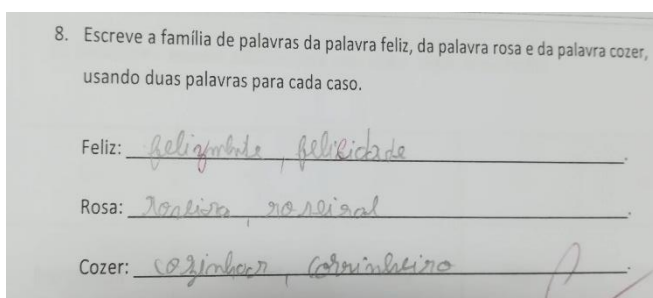 8. Escreve a família de palavras da palavra feliz, da palavra rosa e da palavra cozer,
usando duas palavras para cada caso.
Feliz: felizmente, felicidade.
Rosa: roseira, roseiral.
Cozer: cozinhar, cozinheiro.